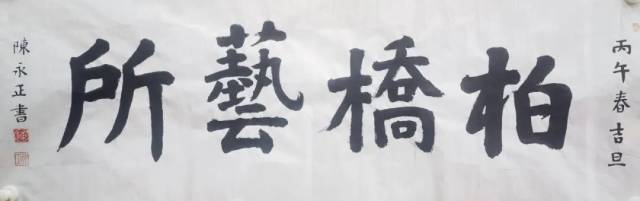 丙午春吉旦
柏橋藝所
陳永正書